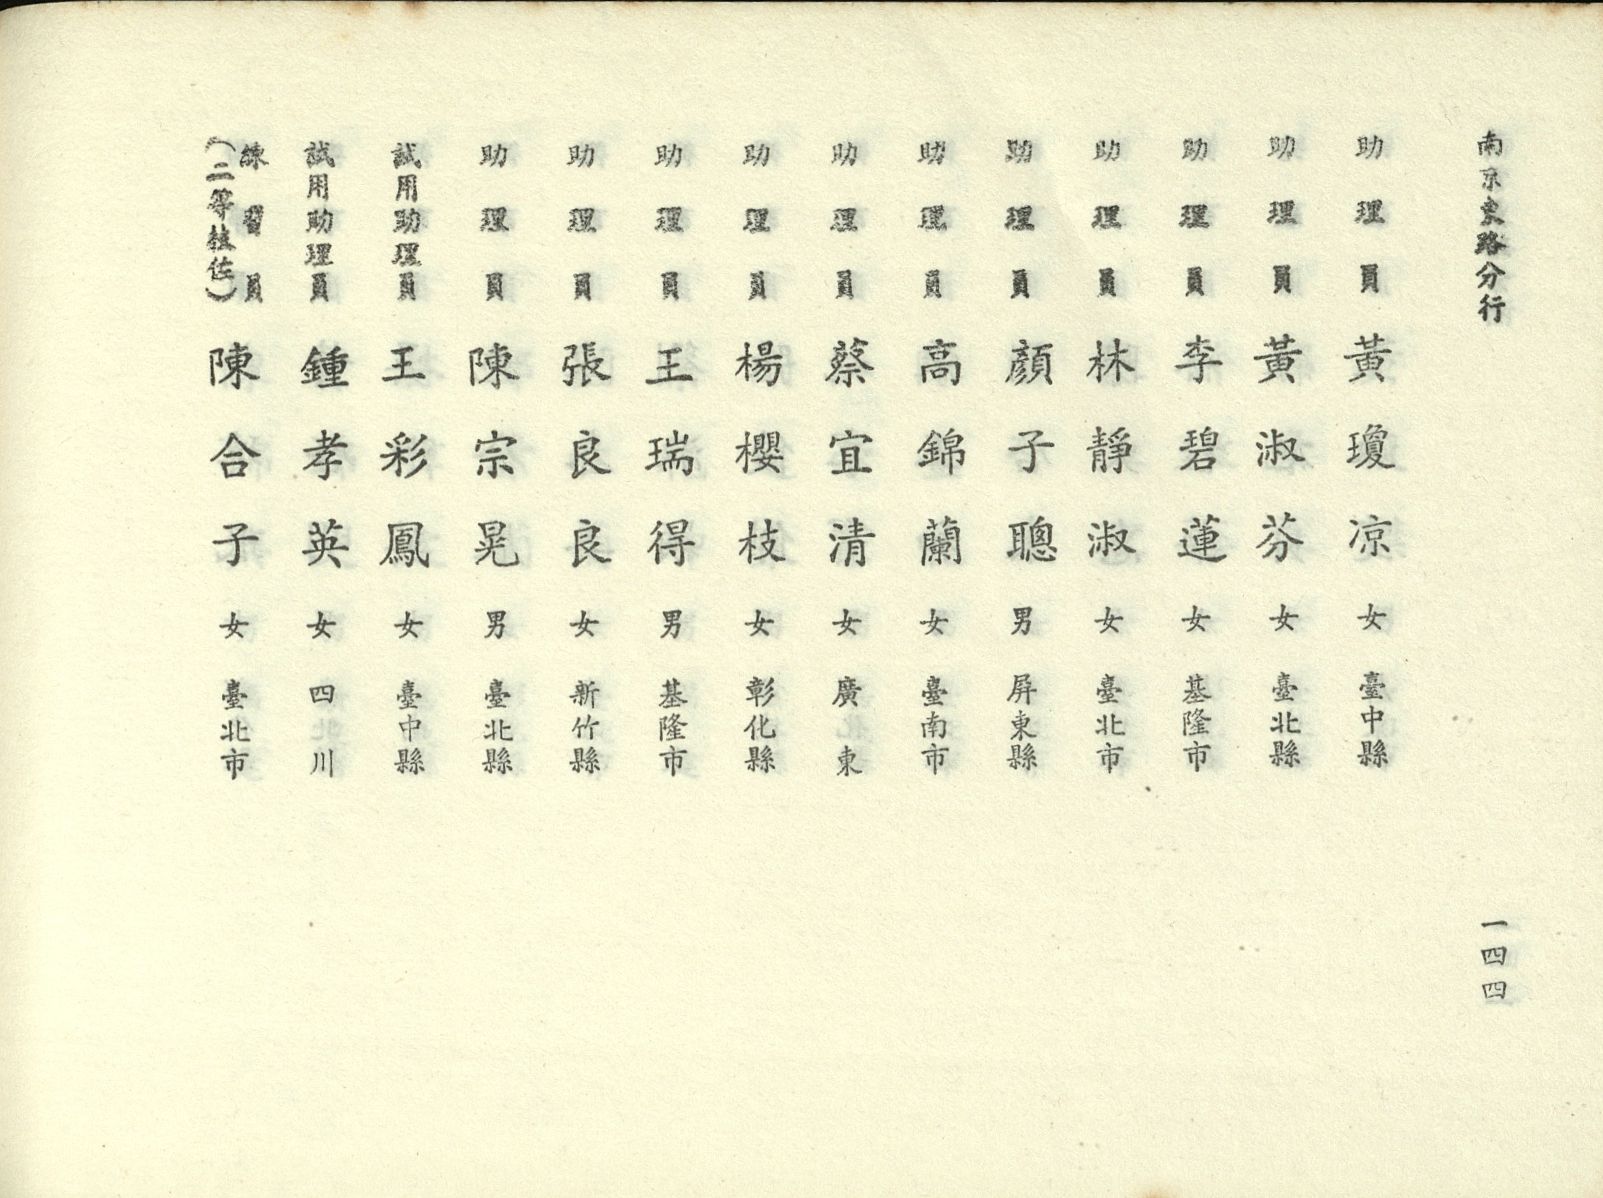 南京東路分行
一四四
助理員 黃瓊凉 女 臺中縣
助理員 黃淑芬 女 臺北縣
助理員 李碧蓮 女 基隆市
助理員 林靜淑 女 臺北市
助理員 顏子聰 男 屏東縣
助理員 高錦蘭 女 臺南市
助理員 蔡宜清 女 廣東
助理員 楊櫻枝 女 彰化縣
助理員 王瑞得 男 基隆市
助理員 張良良 女 新竹縣
助理員 陳宗晃 男 臺北縣
試用助理員 王彩鳳 女 臺中縣
試用助理員 鍾孝英 女 四川
練習員 陳合子 女 臺北市
（二等技佐）